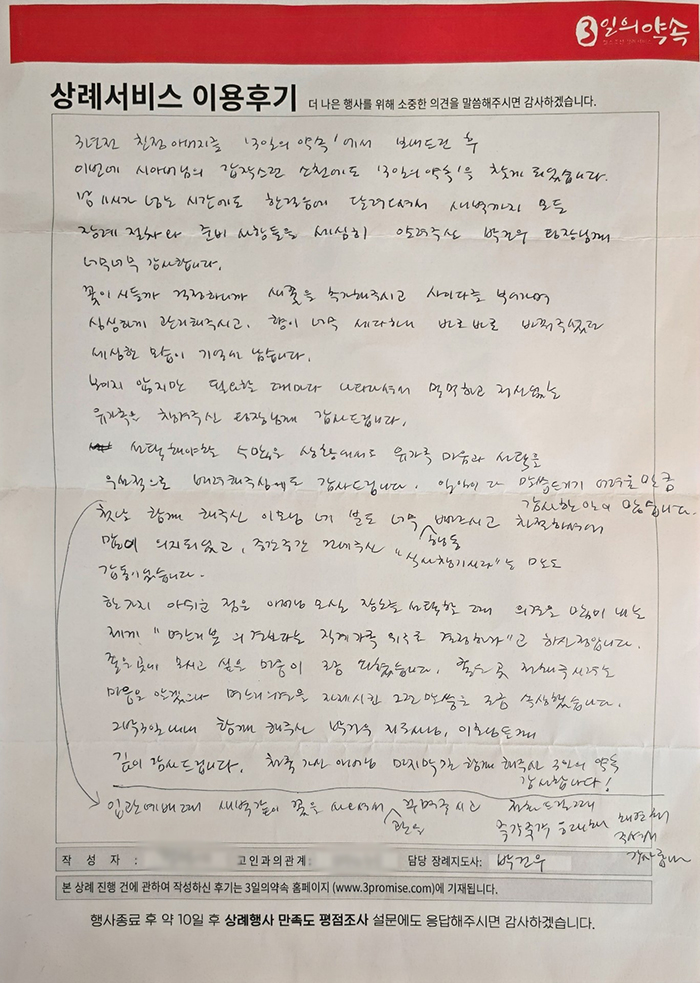 3일의약속
상례서비스 이용후기 더 나은 행사를 위해 소중한 의견을 말씀해주시면 감사하겠습니다.
3년전 친정아버지를 '3일의 약속'에서 보내드린 후
이번에 시어머님의 갑작스런 소천에도 '3일의 약속'을 찾게 되었습니다.
밤 11시가 넘는 시간에도 한걸음에 달려오셔서 새벽까지 모든
장례 절차와 준비 사항들을 세심히 알려주신 박건우 팀장님께
너무너무 감사합니다.
꽃이 시들까 걱정하니까 새꽃을 추가해주시고 사이다를 부어가며
싱싱하게 관리해주시고, 향이 너무 세다하니 바로바로 바꿔주셨던
세심한 모습이 기억에 남습니다.
보이지 않지만 필요할 때마다 나타나셔서 먹먹하고 정신없는
유가족을 챙겨주신 팀장님께 감사드립니다.
선택해야할 수많은 상황에서도 유가족 마음과 선택을
우선적으로 배려해주심에도 감사드립니다. 일일이 다 말씀드리기 어려울만큼
감사한 일이 많습니다.
첫날 함께 해주신 이모님 네 분도 너무 빠르시고 친절하셔서
많이 의지되었고, 중간중간 건네주신 "식사 챙기시라"는 말도
행동
감동이었습니다.
한가지 아쉬운 점은 어머님 모실 장소를 선택할 때 의견을 많이 내는
제게 "며느리분 의견보다는 직계가족 위주로 결정하라"고 하신 점입니다.
좋은 곳에 모시고 싶은 마음이 조금 과했습니다. 좋은 곳 추천해주시려는
마음은 알겠으나 며느리의견을 자제시킨 그런 말씀은 조금 속상했습니다.
2박3일 내내 함께 해주신 박건우 지도사님, 이모님들께
깊이 감사드립니다. 천국 가신 어머님 마지막 길 함께 해주신 3일의 약속
감사합니다!
입관예배 때 새벽같이 꽃을 사오셔서 꾸며주시고
관을
즉각즉각 응대해
주셔서
감사합니다
작 성 자 : 고인과의관계: 담당 장례지도사: 박건우
본 상례 진행 건에 관하여 작성하신 후기는 3일의약속 홈페이지 (www.3promise.com)에 기재됩니다.
행사종료 후 약 10일 후 상례행사 만족도 평점조사 설문에도 응답해주시면 감사하겠습니다.